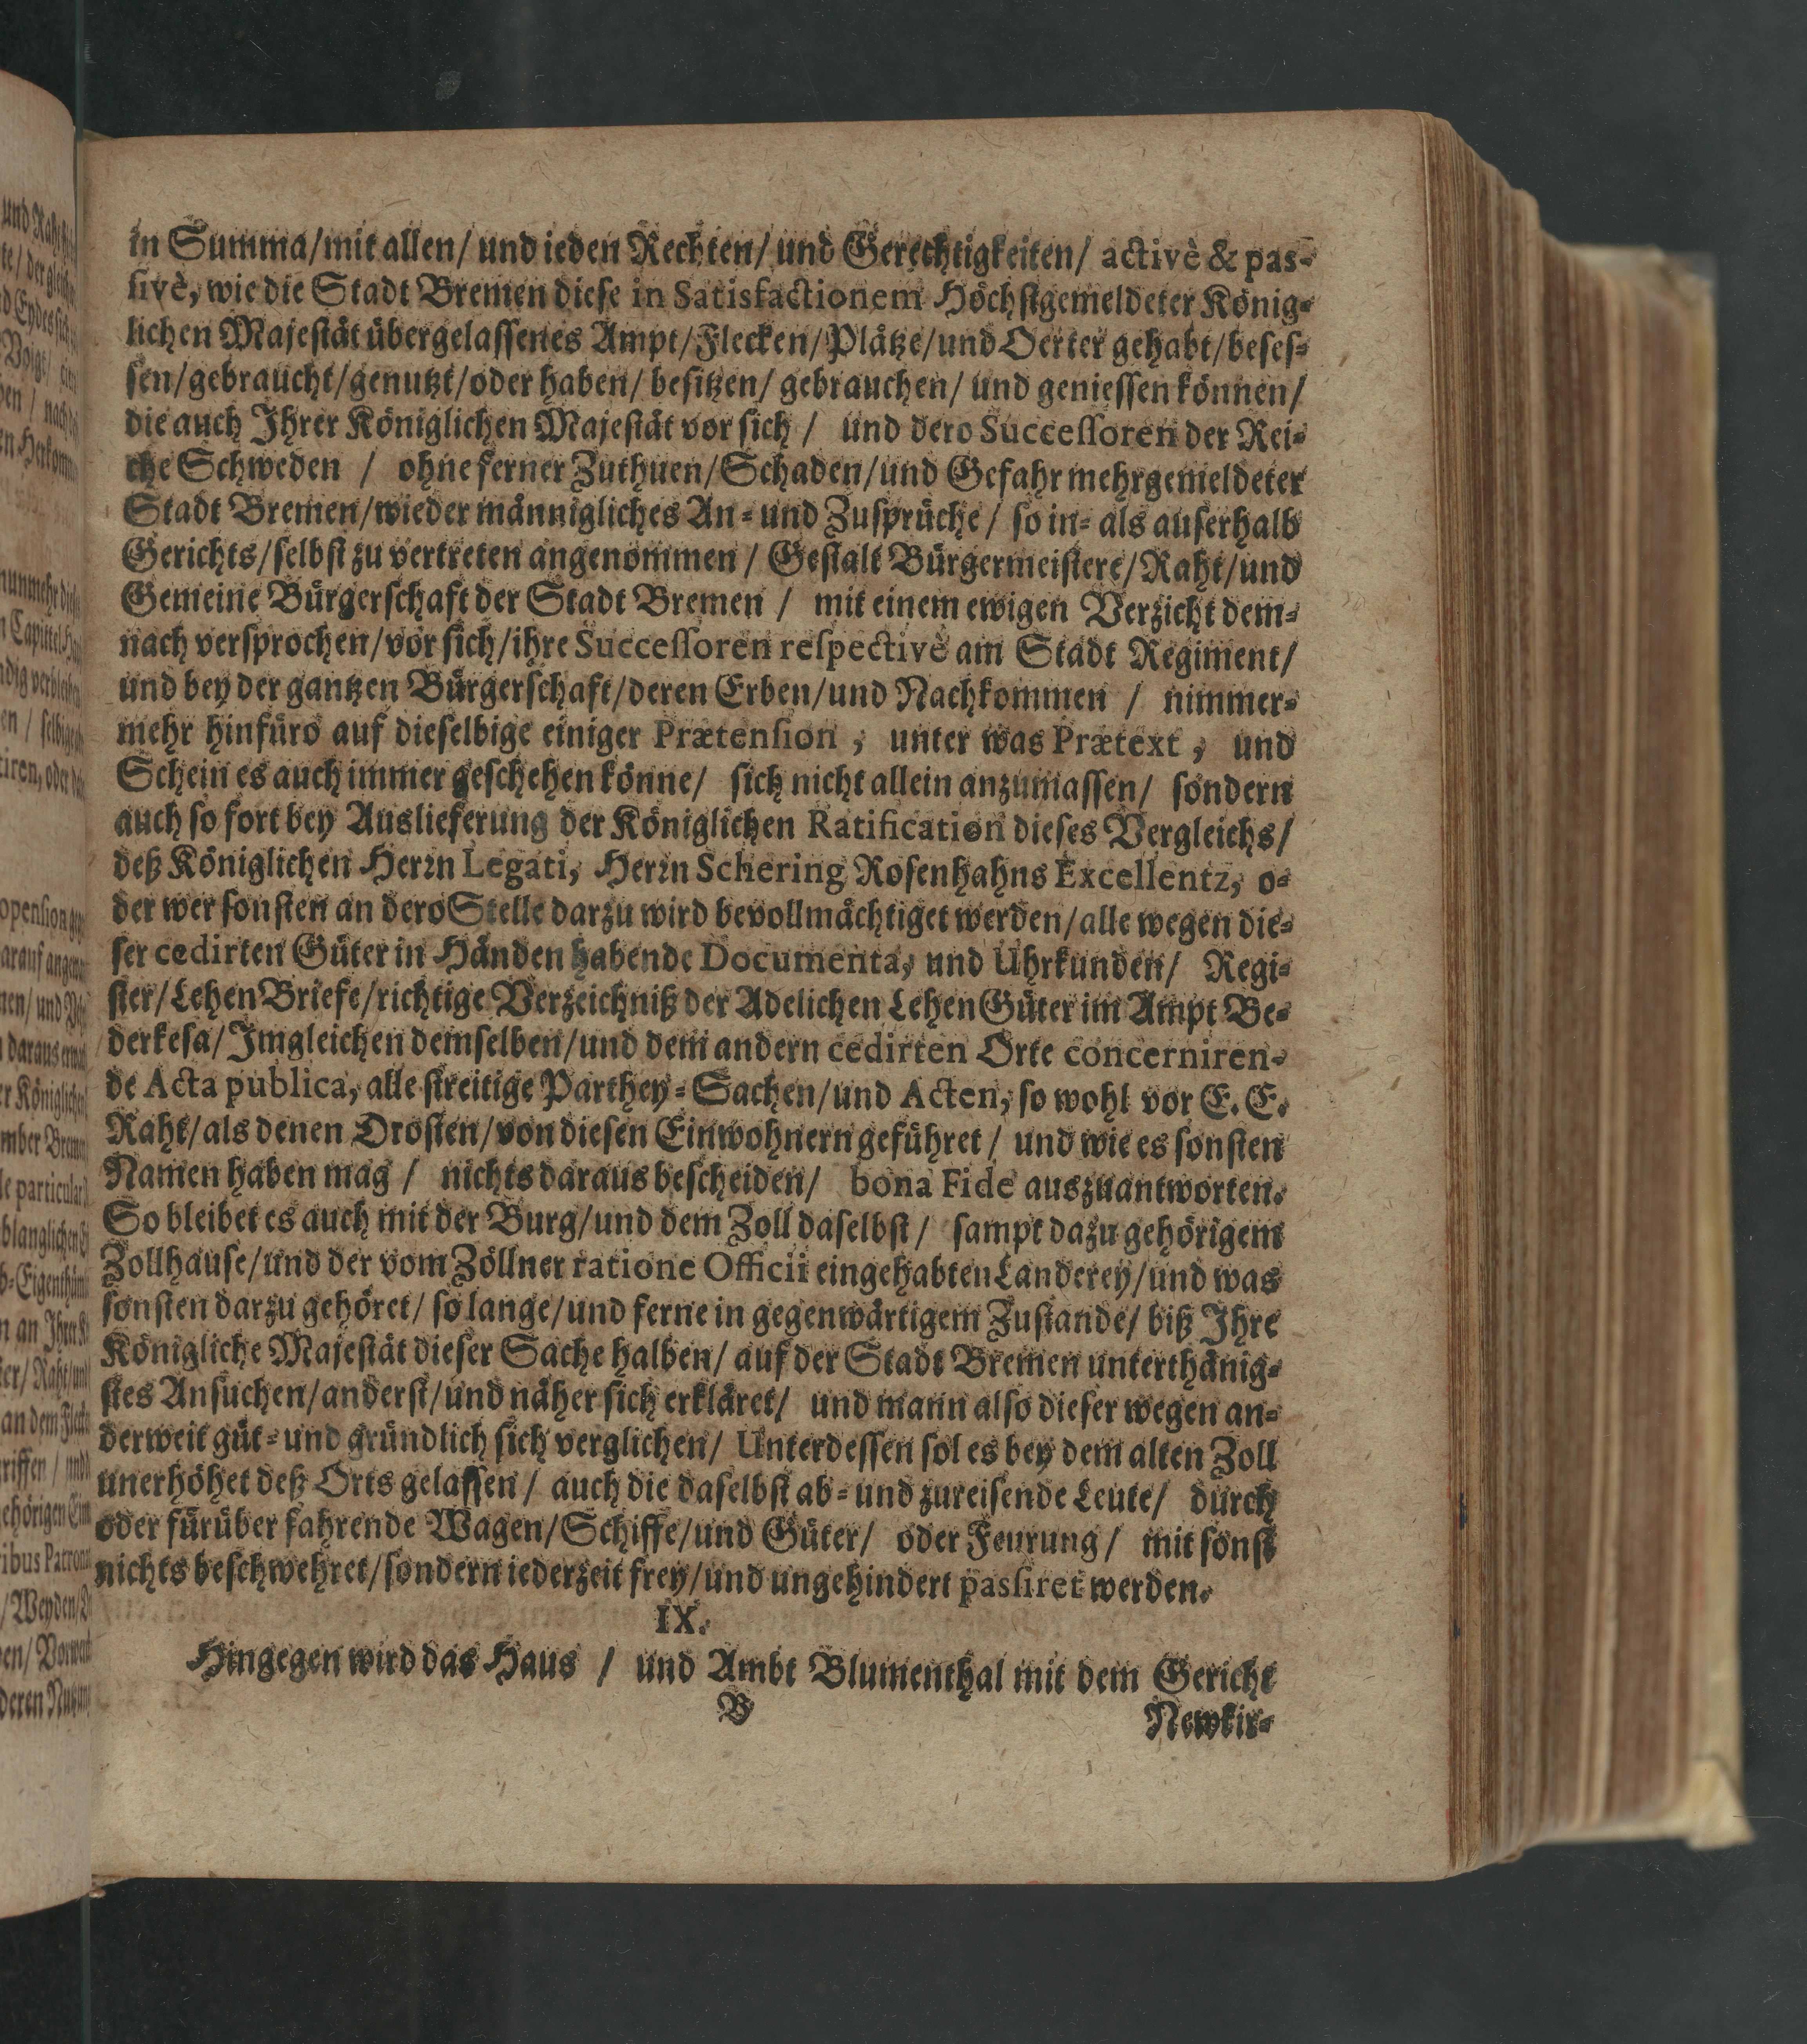 in Summa/mit allen/ und ieden Rechten/ und Gerechtigkeiten/ activè & pas-
sivè, wie die Stadt Bremen diese in Satisfactionem Höchstgemeldeter König-
lichen Majestät übergelassenes Ampt/Flecken/Plätze/und Oerter gehabt/beses-
sen/gebraucht/genutzt/oder haben/ besitzen/ gebrauchen/ und geniessen können/
die auch Ihrer Königlichen Majestät vor sich / und dero Successoren der Rei-
che Schweden / ohne ferner Zuthuen/Schaden/und Gefahr mehrgemeldeter
Stadt Bremen/wieder männigliches An- und Zusprüche/ so in- als auserhalb
Gerichts/selbst zu vertreten angenommen / Gestalt Bürgermeistere/Raht/und
Gemeine Bürgerschaft der Stadt Bremen / mit einem ewigen Verzicht dem-
nach versprochen/vor sich/ihre Successoren respectivè am Stadt Regiment/
und bey der gantzen Bürgerschaft/deren Erben/und Nachkommen / nimmer-
mehr hinfüro auf dieselbige einiger Prætension, unter was Prætext, und
Schein es auch immer geschehen könne/ sich nicht allein anzumassen/ sondern
auch so fort bey Auslieferung der Königlichen Ratification dieses Vergleichs/
deß Königlichen Herrn Legati, Herrn Schering Rosenhahns Excellentz, o-
der wer sonsten an dero Stelle darzu wird bevollmächtiget werden/alle wegen die-
ser cedirten Güter in Händen habende Documenta, und Uhrkunden/ Regi-
ster/Lehen Briefe/richtige Verzeichniß der Adelichen Lehen Güter im Ampt Be-
derkesa/Imgleichen demselben/und dem andern cedirten Orte concerniren-
de Acta publica, alle streitige Parthey-Sachen/und Acten, so wohl vor E. E.
Raht/als denen Drosten/von diesen Einwohnern geführet/ und wie es sonsten
Namen haben mag / nichts daraus bescheiden/ bona Fide auszuantworten.
So bleibet es auch mit der Burg/und dem Zoll daselbst/ sampt dazu gehörigem
Zollhause/und der vom Zöllner ratione Officii eingehabten Landerey/und was
sonsten darzu gehöret/ so lange/und ferne in gegenwärtigem Zustande/ biß Ihre
Königliche Majestät dieser Sache halben/ auf der Stadt Bremen unterthänig-
stes Ansuchen/anderst/und näher sich erkläret/ und mann also dieser wegen an-
derweit güt- und gründlich sich verglichen/ Unterdessen sol es bey dem alten Zoll
unerhöhet deß Orts gelassen/ auch die daselbst ab- und zureisende Leute/ durch
oder fürüber fahrende Wagen/Schiffe/und Güter/ oder Feurung/ mit sonst
nichts beschwehret/sondern iederzeit frey/und ungehindert passiret werden.
IX.
Hingegen wird das Haus / und Ambt Blumenthal mit dem Gericht
B
Newkir-